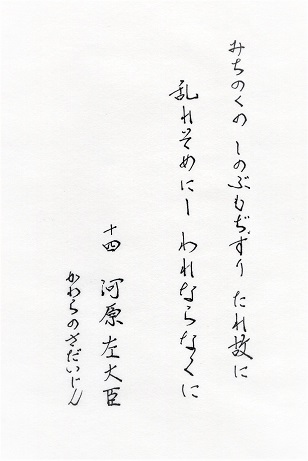 みちのくの しのぶもぢずり たれ故に
乱れそめにし われならなくに
十四 河原左大臣
かわらのさだいじん